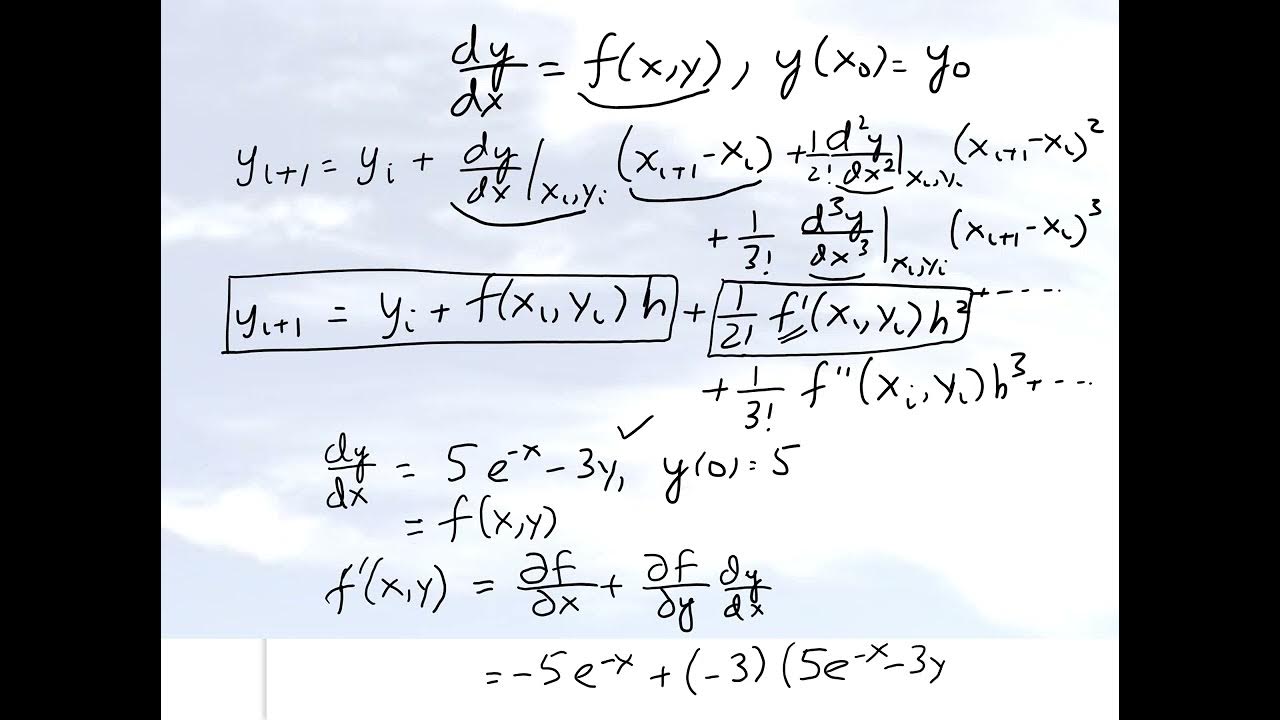 dy/dx = f(x,y), y(x₀) = y₀
yᵢ₊₁ = yᵢ + dy/dx|xᵢ,yᵢ (xᵢ₊₁-xᵢ) + 1/2! d²y/dx²|xᵢ,yᵢ (xᵢ₊₁-xᵢ)²
+ 1/3! d³y/dx³|xᵢ,yᵢ (xᵢ₊₁-xᵢ)³
yᵢ₊₁ = yᵢ + f(xᵢ,yᵢ)h + 1/2! f'(xᵢ,yᵢ)h² + ----
+ 1/3! f''(xᵢ,yᵢ)h³ + ---
dy/dx = 5e⁻ˣ - 3y, y(0) = 5 ✓
= f(x,y)
f'(x,y) = ∂f/∂x + ∂f/∂y dy/dx
= -5e⁻ˣ + (-3)(5e⁻ˣ-3y